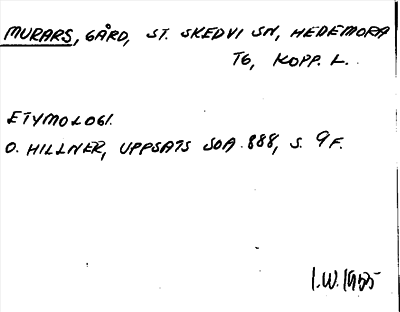 MURARS, GÅRD, ST. SKEDVI SN, HEDEMORA
TG, KOPP. L.
ETYMOLOGI.
O. HILLNER, UPPSATS SOA 888, S. 9 F.
I.W. 1955